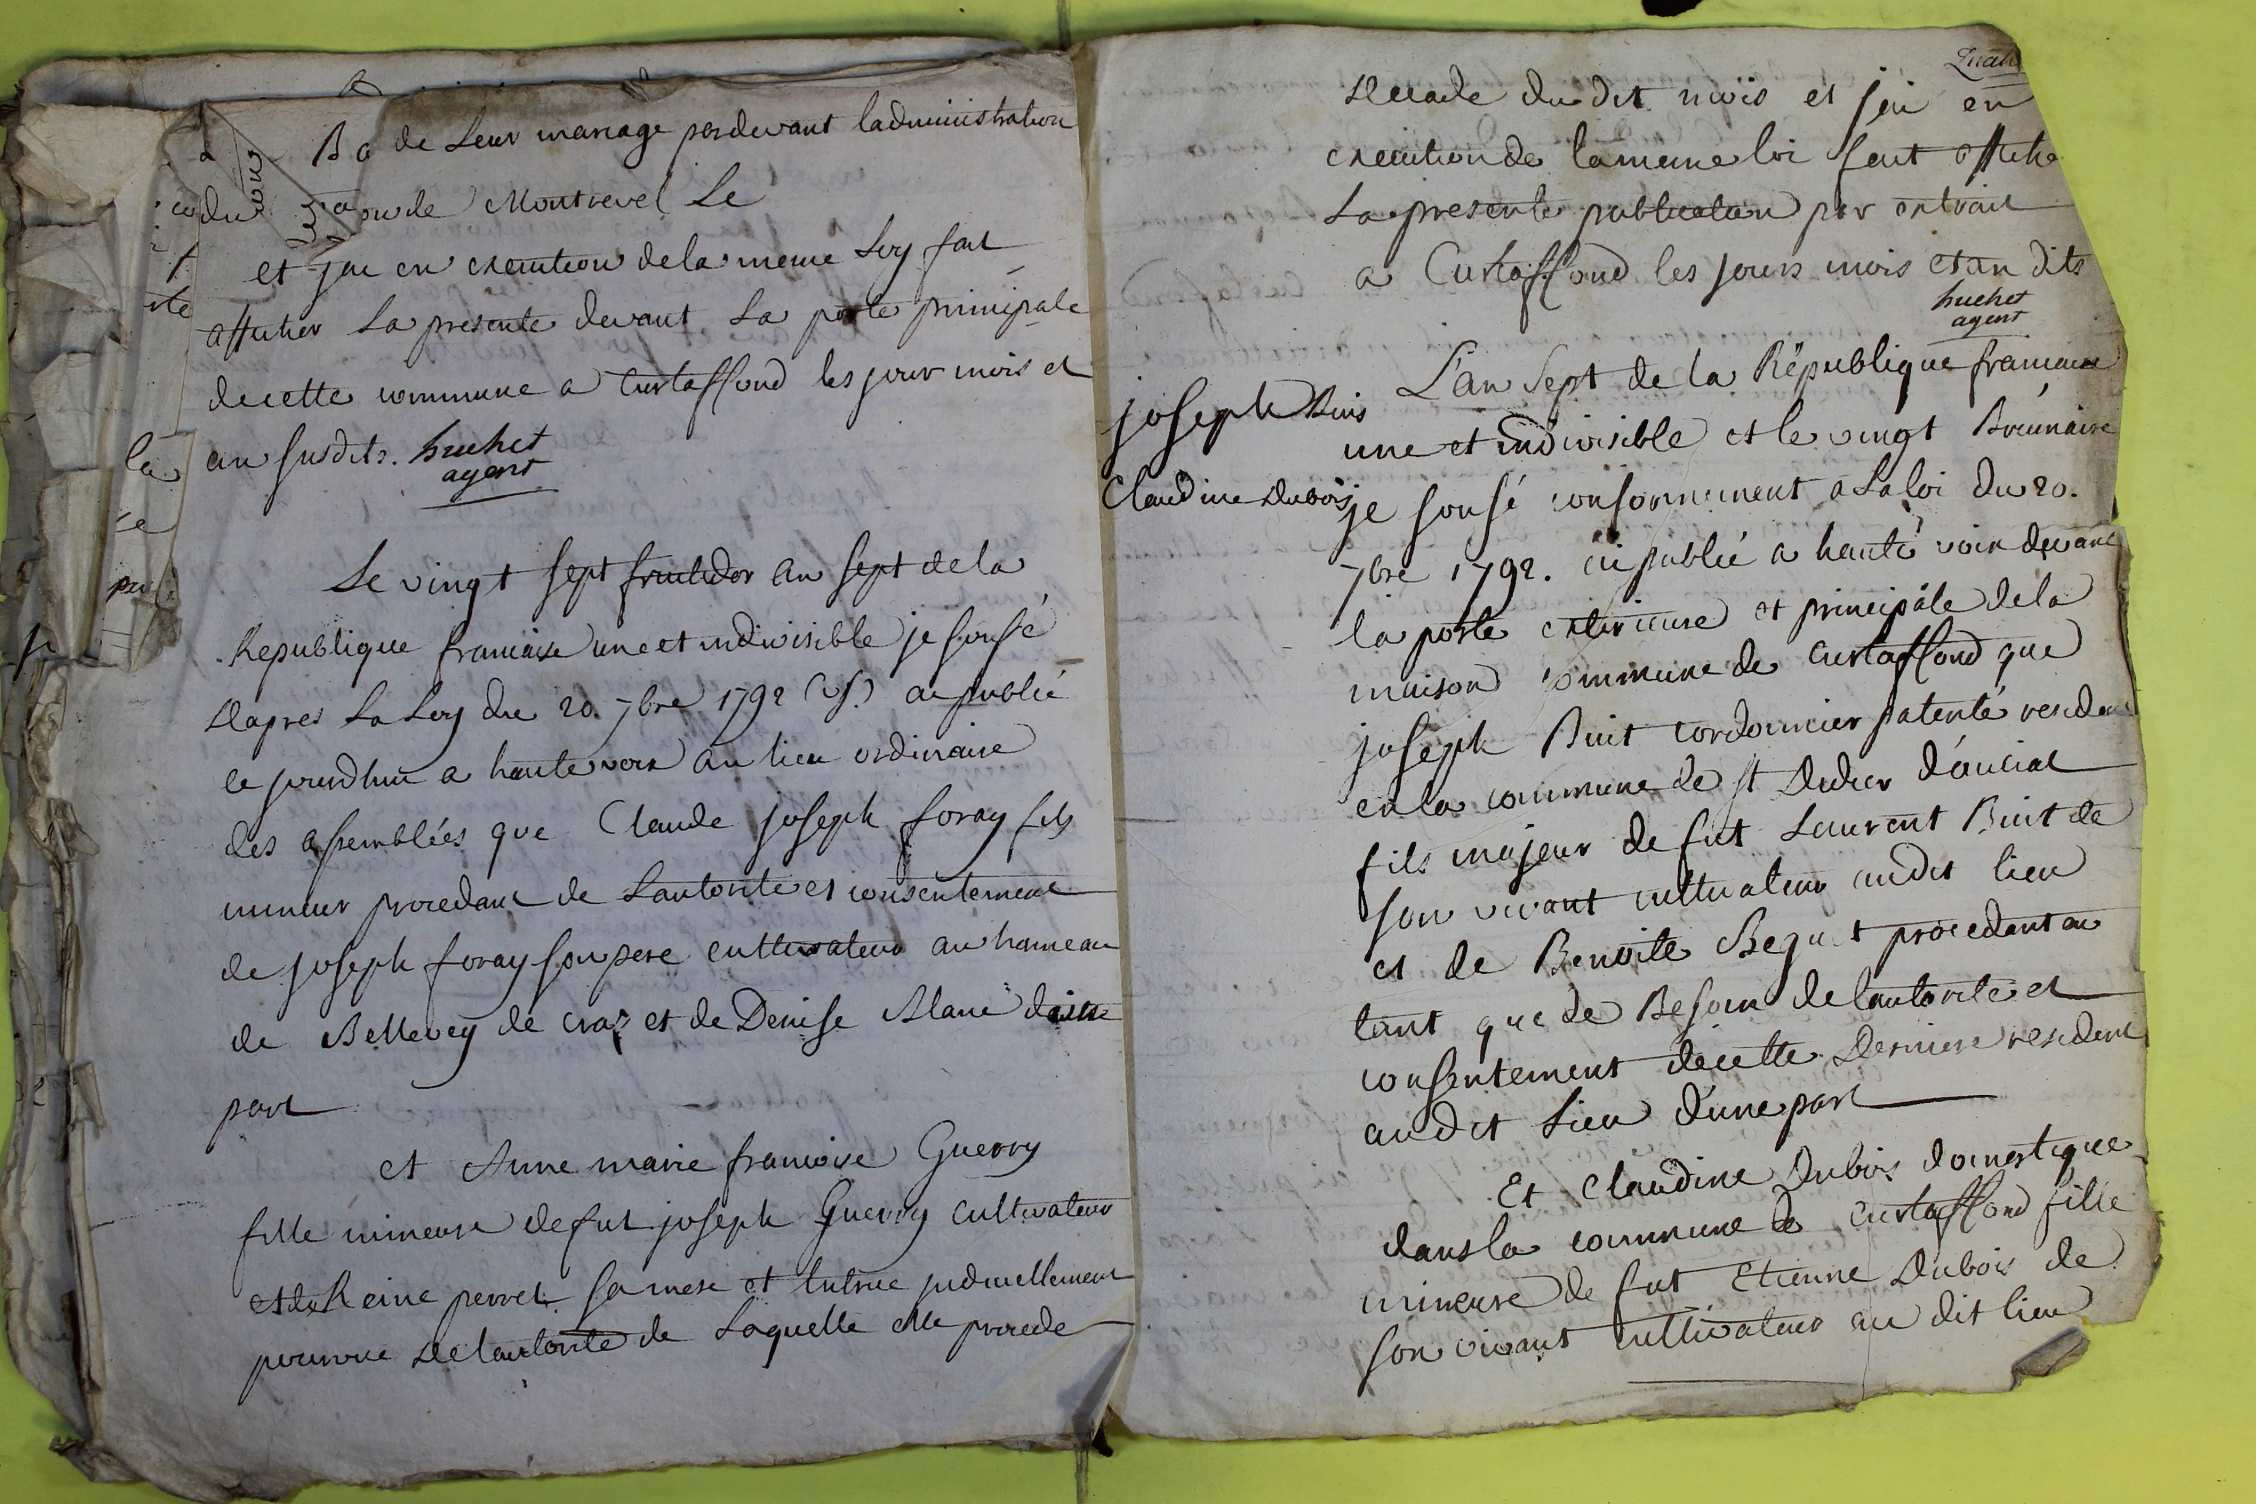 de Leur mariage pardevant ladministration
du de Montrevel Le
et jai en execution de la meme Loy fait
afficher La presente devant La porte principale
de cette commune a Curtaffond les jour mois et
an susdits. huchet
agent
Le vingt sept fructidor an sept de la
Republique francaise une et indivisible je sousé
Dapres La Loy du 20. 7bre 1792 (vs.) ai publié
ce jourdhui a haute voix au lieu ordinaire
des assemblées que Claude joseph foray fils
mineur procedant de Lautorite et consentement
de joseph foray son pere cultivateur au hameau
de Bellevey de craz et de Denise Blanc dune
part
et Anne marie francoise Guerry
fille mineure de fut joseph Guerry cultivateur
et de Reine perret sa mere et tutrice judiciellement
pourvue De lautorite de Laquelle elle procede
Decade du dit mois et jai en
execution de la meme loi fait affiche
La presente publication par extrait
a Curtaffond les jours mois et an dits
huchet
agent
joseph Buis
Claudine Dubois
L'an Sept de la République francaise
une et indivisible et le vingt Brumaire
je sousé conformement a La loi du 20.
7bre 1792. ai publié a haute voix devant
la porte exterieure et principale de la
maison commune de Curtaffond que
joseph Buit cordonnier patenté resident
en la commune de St Didier d'aussiat
fils majeur de fut Laurent Buit de
son vivant cultivateur audit lieu
et de Benoite procedant au
tant que de Besoin de lautorite et
consentement de cette Derniere resident
audit Lieu d'une part
Et Claudine Dubois domestique
dans la commune de Curtaffond fille
mineure de fut Etienne Dubois de
son vivant cultivateur au dit lieu